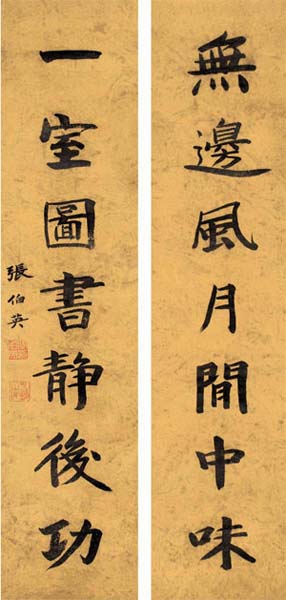 無邊風月閒中味
一室圖書静後功
張伯英